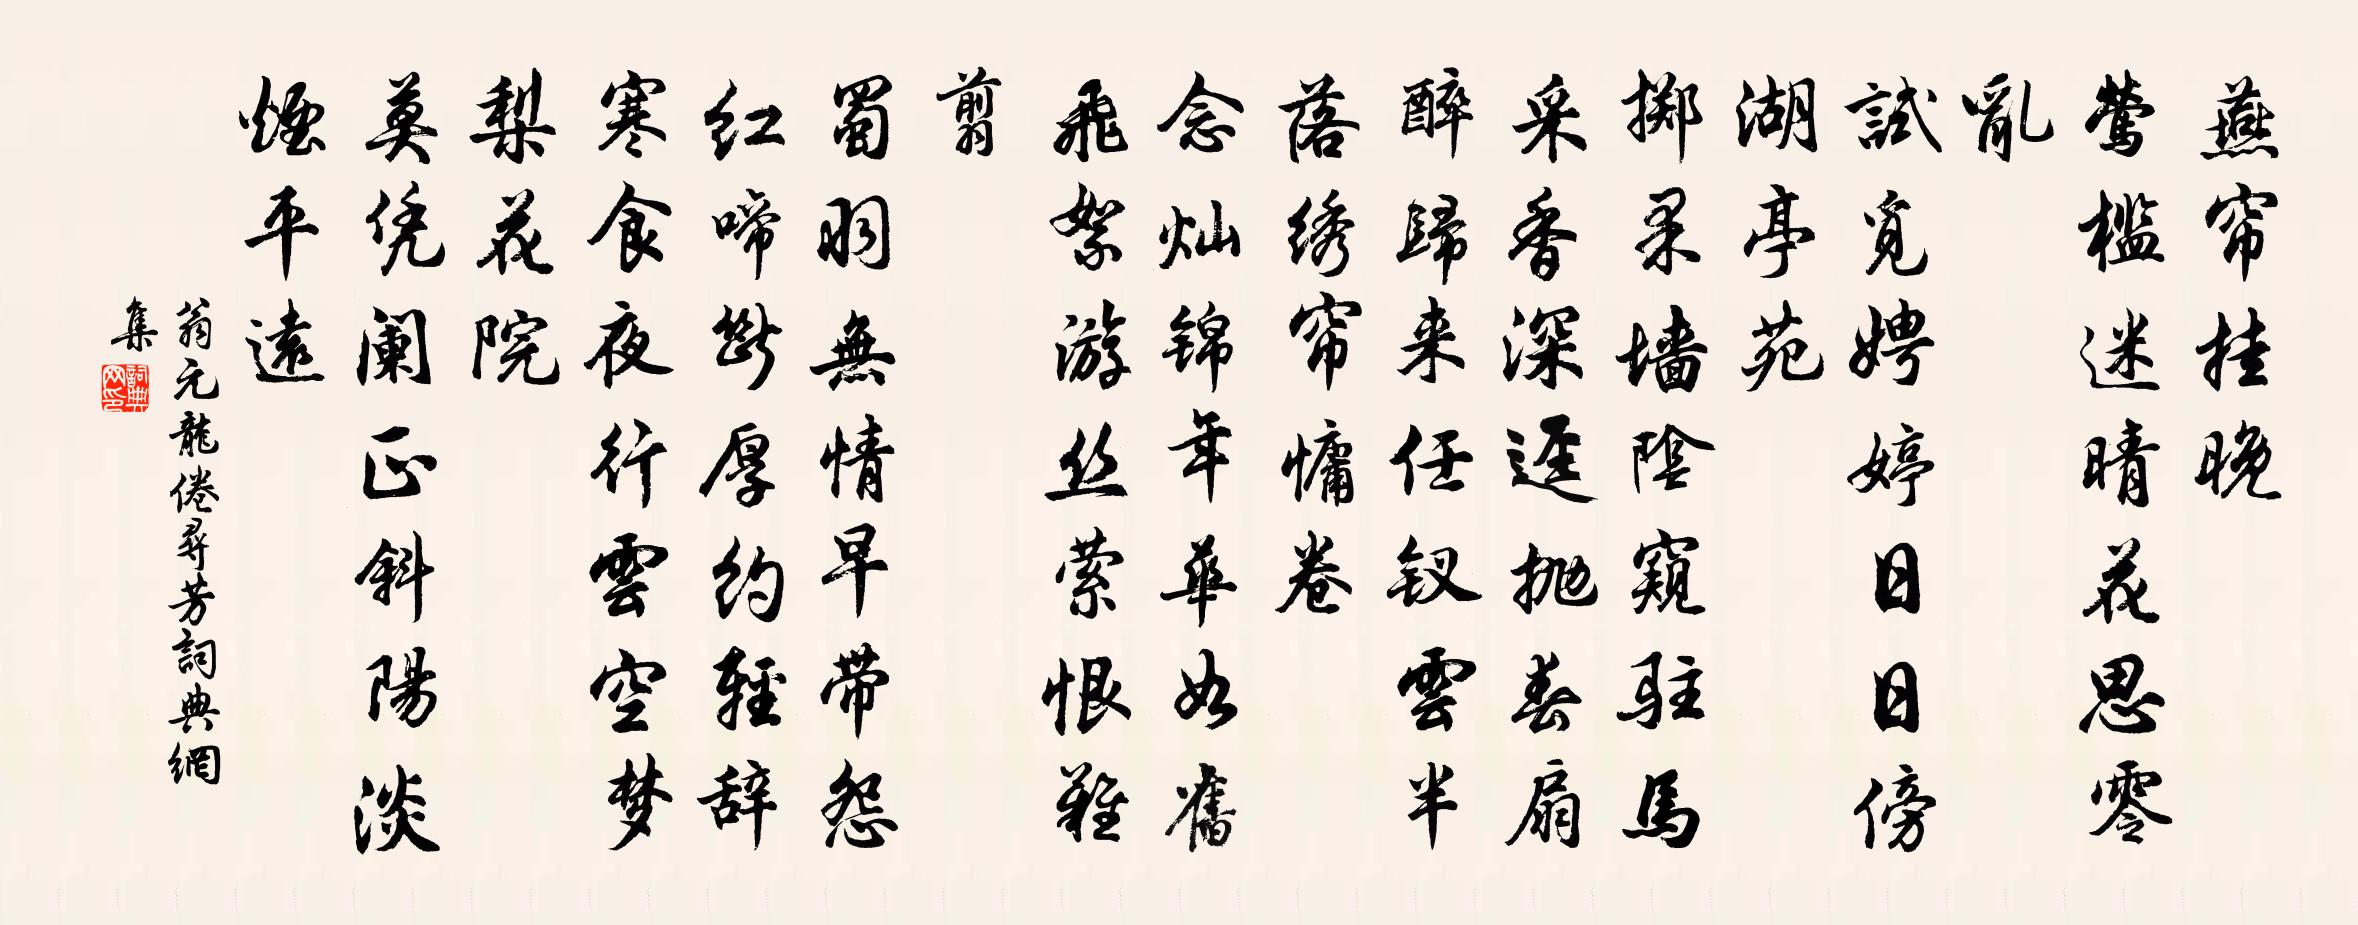 燕帘挂晚
莺槛迷晴花思零
亂
試覓娉婷日日傍
湖亭苑
掷果墙陰窺驻馬
采香深逕抛春扇
醉歸来任钗雲半
落绣帘慵卷
念灿锦年華如舊
飛絮游丝萦恨難
翦
蜀羽無情早带怨
红啼斷厚约輕辞
寒食夜行雲空梦
梨花院
莫凭阑正斜陽淡
煙平遠
翁元龍倦尋芳詞典網
集
詞典网印